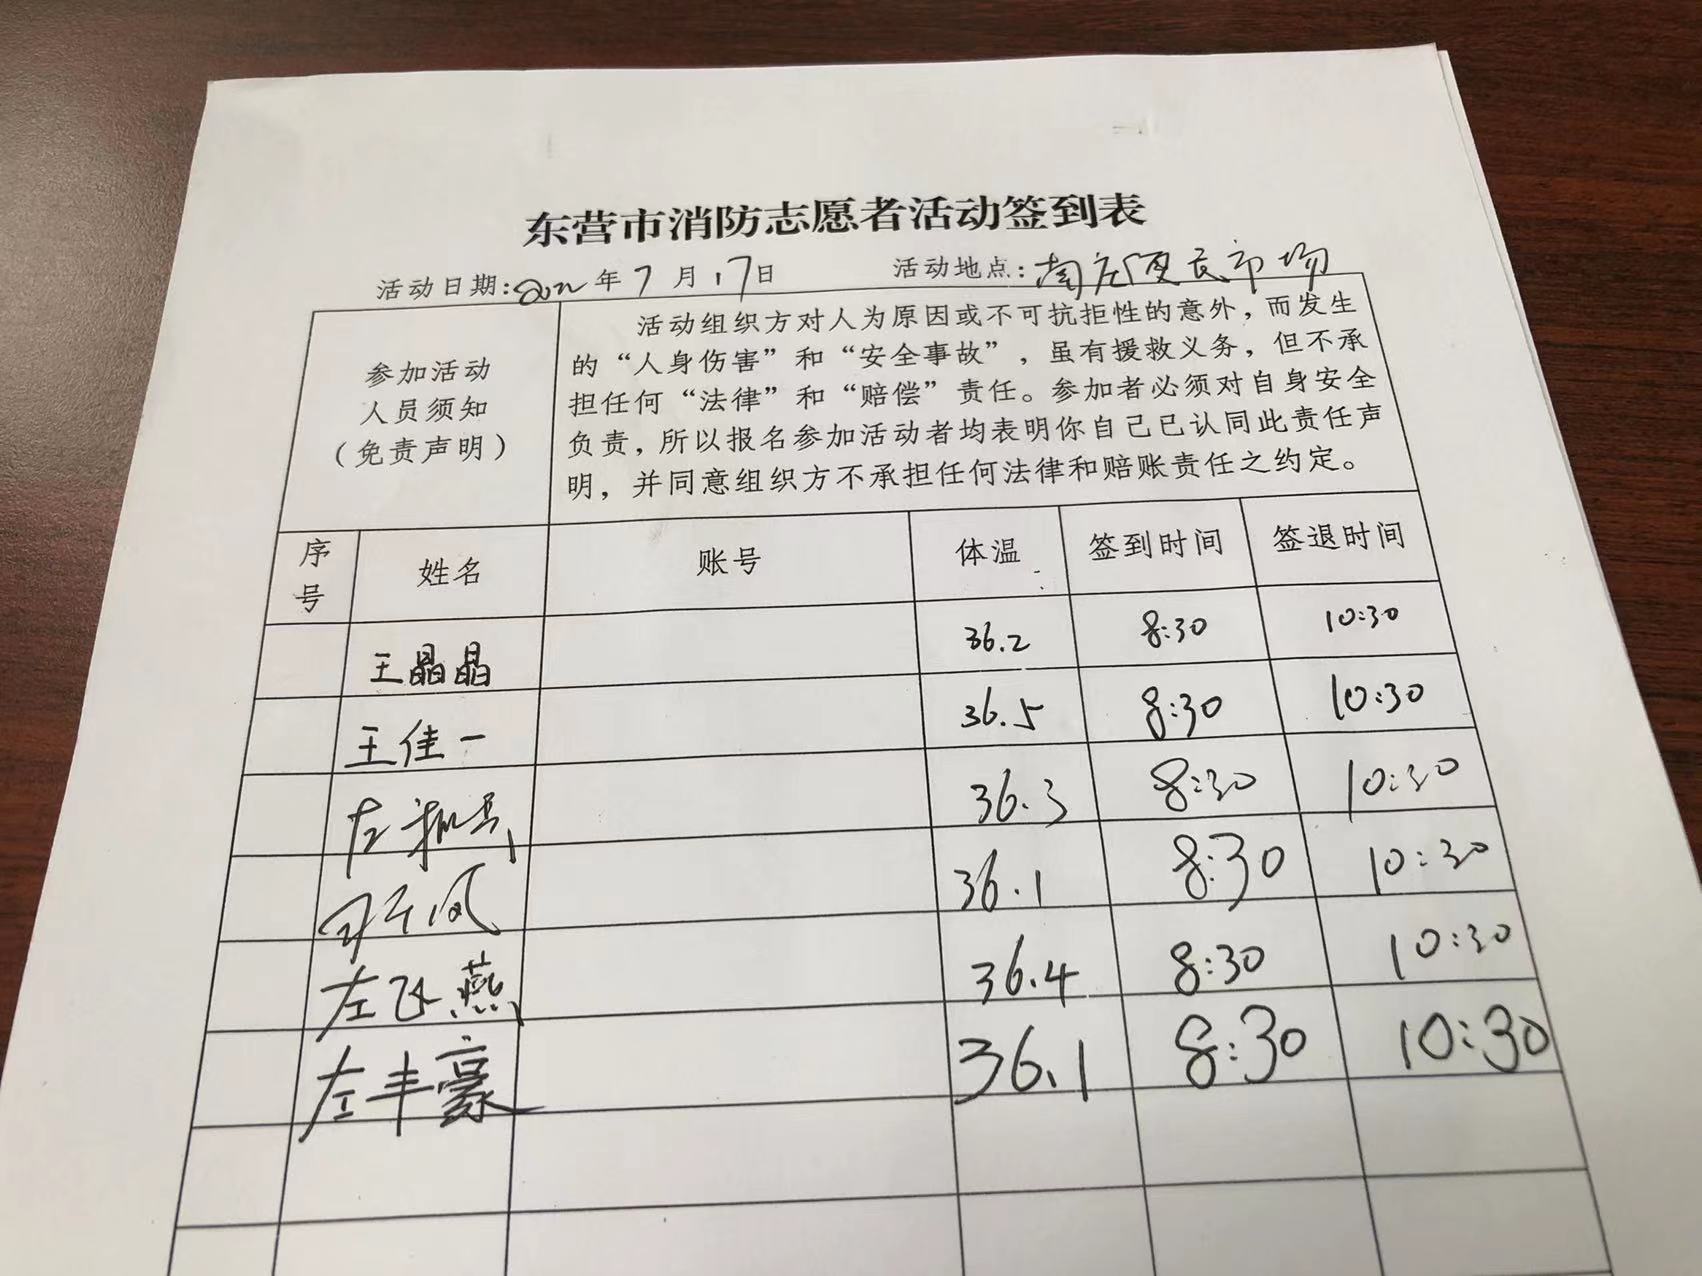 东营市消防志愿者活动签到表
活动日期:2022年7月17日 活动地点:南庄便民市场
参加活动
人员须知
（免责声明）
活动组织方对人为原因或不可抗拒性的意外，而发生
的“人身伤害”和“安全事故”，虽有援救义务，但不承
担任何“法律”和“赔偿”责任。参加者必须对自身安全
负责，所以报名参加活动者均表明你自己已认同此责任声
明，并同意组织方不承担任何法律和赔账责任之约定。
序号 姓名 账号 体温 签到时间 签退时间
王晶晶 36.2 8:30 10:30
王佳一 36.5 8:30 10:30
左 36.3 8:30 10:30
36.1 8:30 10:30
左飞燕 36.4 8:30 10:30
左丰豪 36.1 8:30 10:30